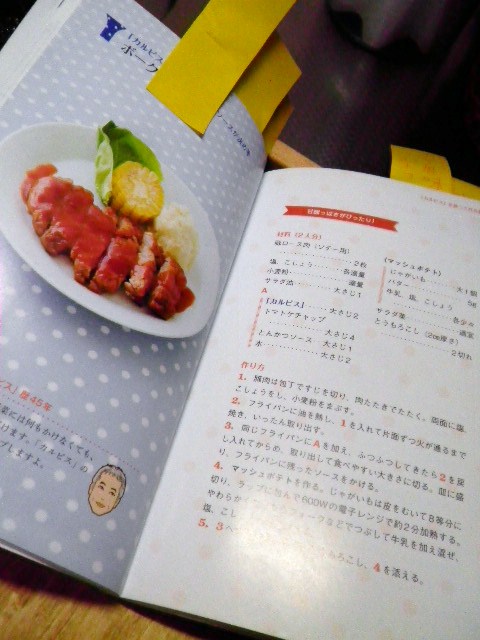 「カルピス
ポーク
ソースがポイ
ピス」歴45年
菜には何もかけなくても、
けます。「カルピス」の
プしますよ。
甘酸っぱさがぴったり!
材料(2人分)
豚ロース肉(ソテー用)
2枚
塩、こしょう 各適量
小麦粉 適量
サラダ油 大さじ1
A
「カルピス」 大さじ2
トマトケチャップ
大さじ4
とんかつソース 大さじ1
水 大さじ2
〈マッシュポテト〉
じゃがいも 大1個
バター 5g
牛乳、塩、こしょう
各少々
サラダ菜 適宜
とうもろこし(2cm厚さ)
2切れ
作り方
1. 豚肉は包丁ですじを切り、肉たたきでたたく。両面に塩、
こしょうをし、小麦粉をまぶす。
2. フライパンに油を熱し、1を入れて片面ずつ火が通るまで
焼き、いったん取り出す。
3. 同じフライパンにAを加え、ふつふつしてきたら2を戻
し入れてからめ、取り出して食べやすい大きさに切る。皿に盛
り、フライパンに残ったソースをかける。
4. マッシュポテトを作る。じゃがいもは皮をむいて8等分に
切り、ラップに包んで600Wの電子レンジで約2分加熱する。
やわらか フォークなどでつぶして牛乳を加え混ぜ、
塩、こし
5. 3へ もろこし、4を添える。